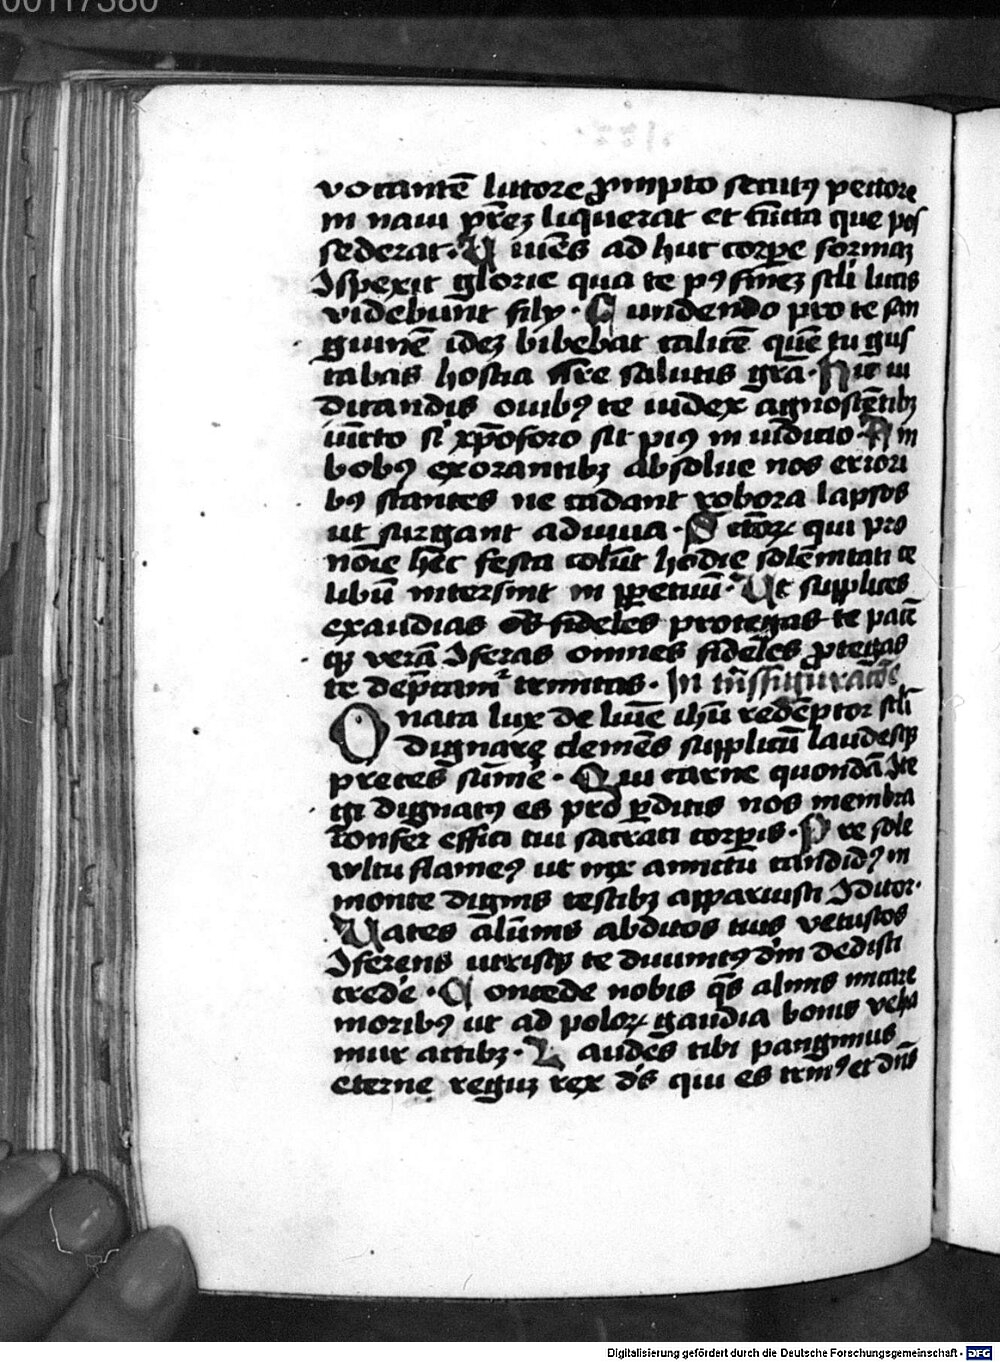 00117380
vocantē littore ꝓmpto secutꝰ pectore
in naui pr̄eꝫ liquerat et cūcta que pos
sederat. Uiuēs ad huc corpe formaꝫ
Ispexit glorie qua te pꝰ finēꝫ scli lucis
videbunt filij. Cundendo pro te san
guinē ideꝫ bibebat calicē quē tu gus
tabas hostia salutis grā. Hic iu
dicandis ouibꝰ te iudex agnoscētibꝫ
iuncto xp̄oforo sit piꝰ in iudicio. Am
bobꝰ exorantibꝫ absolue nos exiori
bꝰ stantes ne cadant robora lapsos
ut surgant adiuua. Sctoꝝ qui pro
noīe hec festa colūt hodie solēnitati te
libūt intersint in ꝑpetuū. Ut supplices
exaudias oēs fideles protegas te patē
qꝫ verā Iferas omnes fideles ꝓtegas
te dep̄camᷣ trinitas. In trāsfiguracōe
O nata lux de lumīe ihū redēptor scli
dignare clemēs supplicū laudesqꝫ
precesqꝫ sūme. Qui carne quondā Ite
gi dignatꝰ es pro ꝑditis nos membra
confer effici tui sacrati corpis. Pre sole
vultu flameꝰ ut nix amictu candidꝰ in
monte dignis testibꝫ apparuisti Iditor.
Uates alūmis abditos tuis vetustos
Iferens utrisqꝫ te diuinitꝰ dm̄ dedisti
crede. Concede nobis q̄s almis micare
moribꝰ ut ad poloꝝ gaudia bonis veha
mur actibꝫ. Laudes tibi pangimus
eterne reguꝫ rex ds̄ qui es trinꝰ et dn̄s
Digitalisierung gefördert durch die Deutsche Forschungsgemeinschaft - DFG